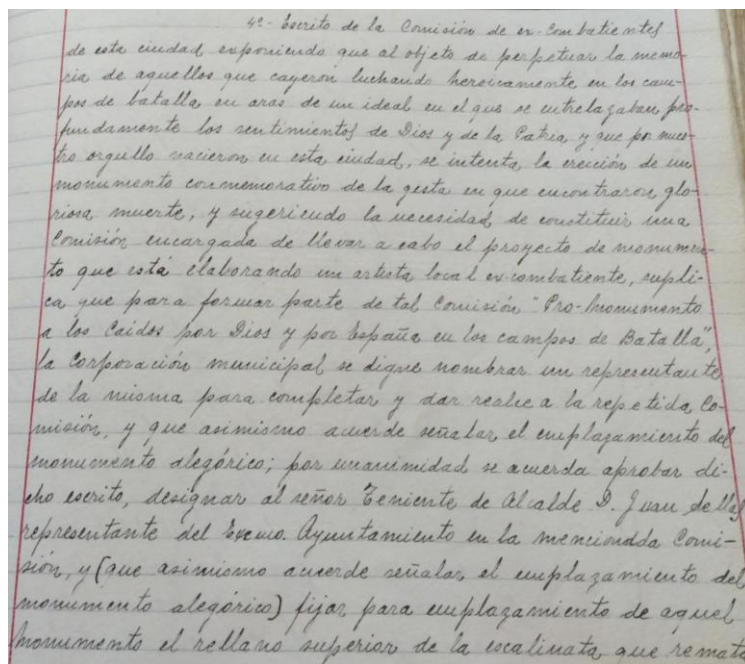 4º- Escrito de la Comisión de ex-Combatientes
de esta ciudad exponiendo que al objeto de perpetuar la memo-
ria de aquellos que cayeron luchando heroicamente en los cam-
pos de batalla, en aras de un ideal en el que se entrelazaban pro-
fundamente los sentimientos de Dios y de la Patria, y que por nues-
tro orgullo nacieron en esta ciudad, se intenta, la erección de un
monumento conmemorativo de la gesta en que encontraron glo-
riosa muerte, y sugeriendo la necesidad de constituir una
Comisión encargada de llevar a cabo el proyecto de monumen-
to que está elaborando un artista local ex-combatiente, supli-
ca que para formar parte de tal Comisión "Pro-Monumento
a los Caidos por Dios y por España en los campos de Batalla",
la Corporación municipal se digne nombrar un representante
de la misma para completar y dar realce a la repetida Co-
misión, y que asimismo acuerde señalar el emplazamiento del
monumento alegórico; por unanimidad se acuerda aprobar di-
cho escrito, designar al señor Teniente de Alcalde D. Juan
representante del Excmo. Ayuntamiento en la mencionada Comi-
sión, y (que asimismo acuerde señalar el emplazamiento del
monumento alegórico) fijar para emplazamiento de aquel
monumento el rellano superior de la escalinata que remata